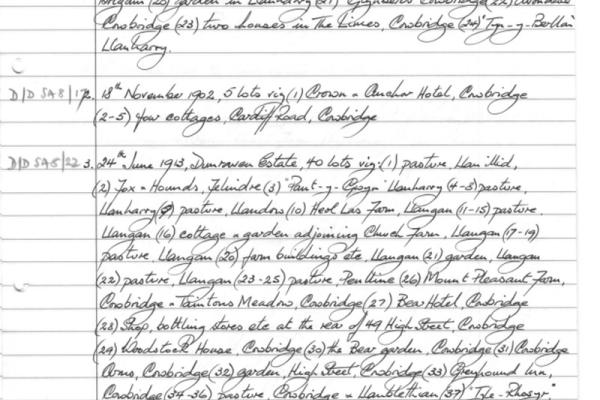 garden in Llanharry (21) Cowbridge (22)
Cowbridge (23) two houses in The Limes, Cowbridge (24) "Tyn-y-Berllan"
Llanharry.
D/D SA 8/17 2. 18th November 1902, 5 lots viz (1) Crown & Anchor Hotel, Cowbridge
(2-5) four cottages, Cardiff Road, Cowbridge
D/D SA 5/22 3. 24th June 1913, Dunraven Estate, 40 lots viz:- (1) pasture, Llan illid,
(2) Fox & Hounds, Felindre (3) "Pant-y- Llanharry (4-8) pasture,
Llanharry (9) pasture, Llandow (10) Heol Las Farm, Llangan (11-15) pasture,
Llangan (16) cottage & garden adjoining Church Farm, Llangan (17-19)
pasture, Llangan (20) farm buildings etc, Llangan (21) garden, Llangan
(22) pasture, Llangan (23-25) pasture, Penlline (26) Mount Pleasant Farm,
Cowbridge & Taintons Meadow, Cowbridge (27) Bear Hotel, Cowbridge
(28) Shop, bottling stores etc at the rear of 49 High Street, Cowbridge
(29) Woodstock House, Cowbridge (30) the Bear garden, Cowbridge (31) Cowbridge
Arms, Cowbridge (32) garden, High Street, Cowbridge (33) Greyhound Inn,
Cowbridge (34-36) pasture, Cowbridge & Llanblethian (37)